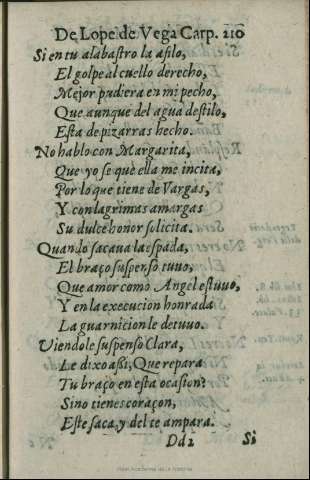 De Lope de Vega Carp. 210
Si en tu alabastro la afilo,
El golpe al cuello derecho,
Mejor pudiera en mi pecho,
Que aunque del agua destilo,
Esta de pizarras hecho.
No hablo con Margarita,
Que yo se que ella me incita,
Por lo que tiene de Vargas,
Y con lagrimas amargas
Su dulce honor solicita.
Quando sacaua la espada,
El braço suspenso tuuo,
Que amor como Angel estuuo,
Y en la execucion honrada
La guarnicion le detuuo.
Viendole suspenso Clara,
Le dixo assi, Que repara
Tu braço en esta ocasion?
Sino tienes coraçon,
Este saca, y del te ampara.
Dd2 Si